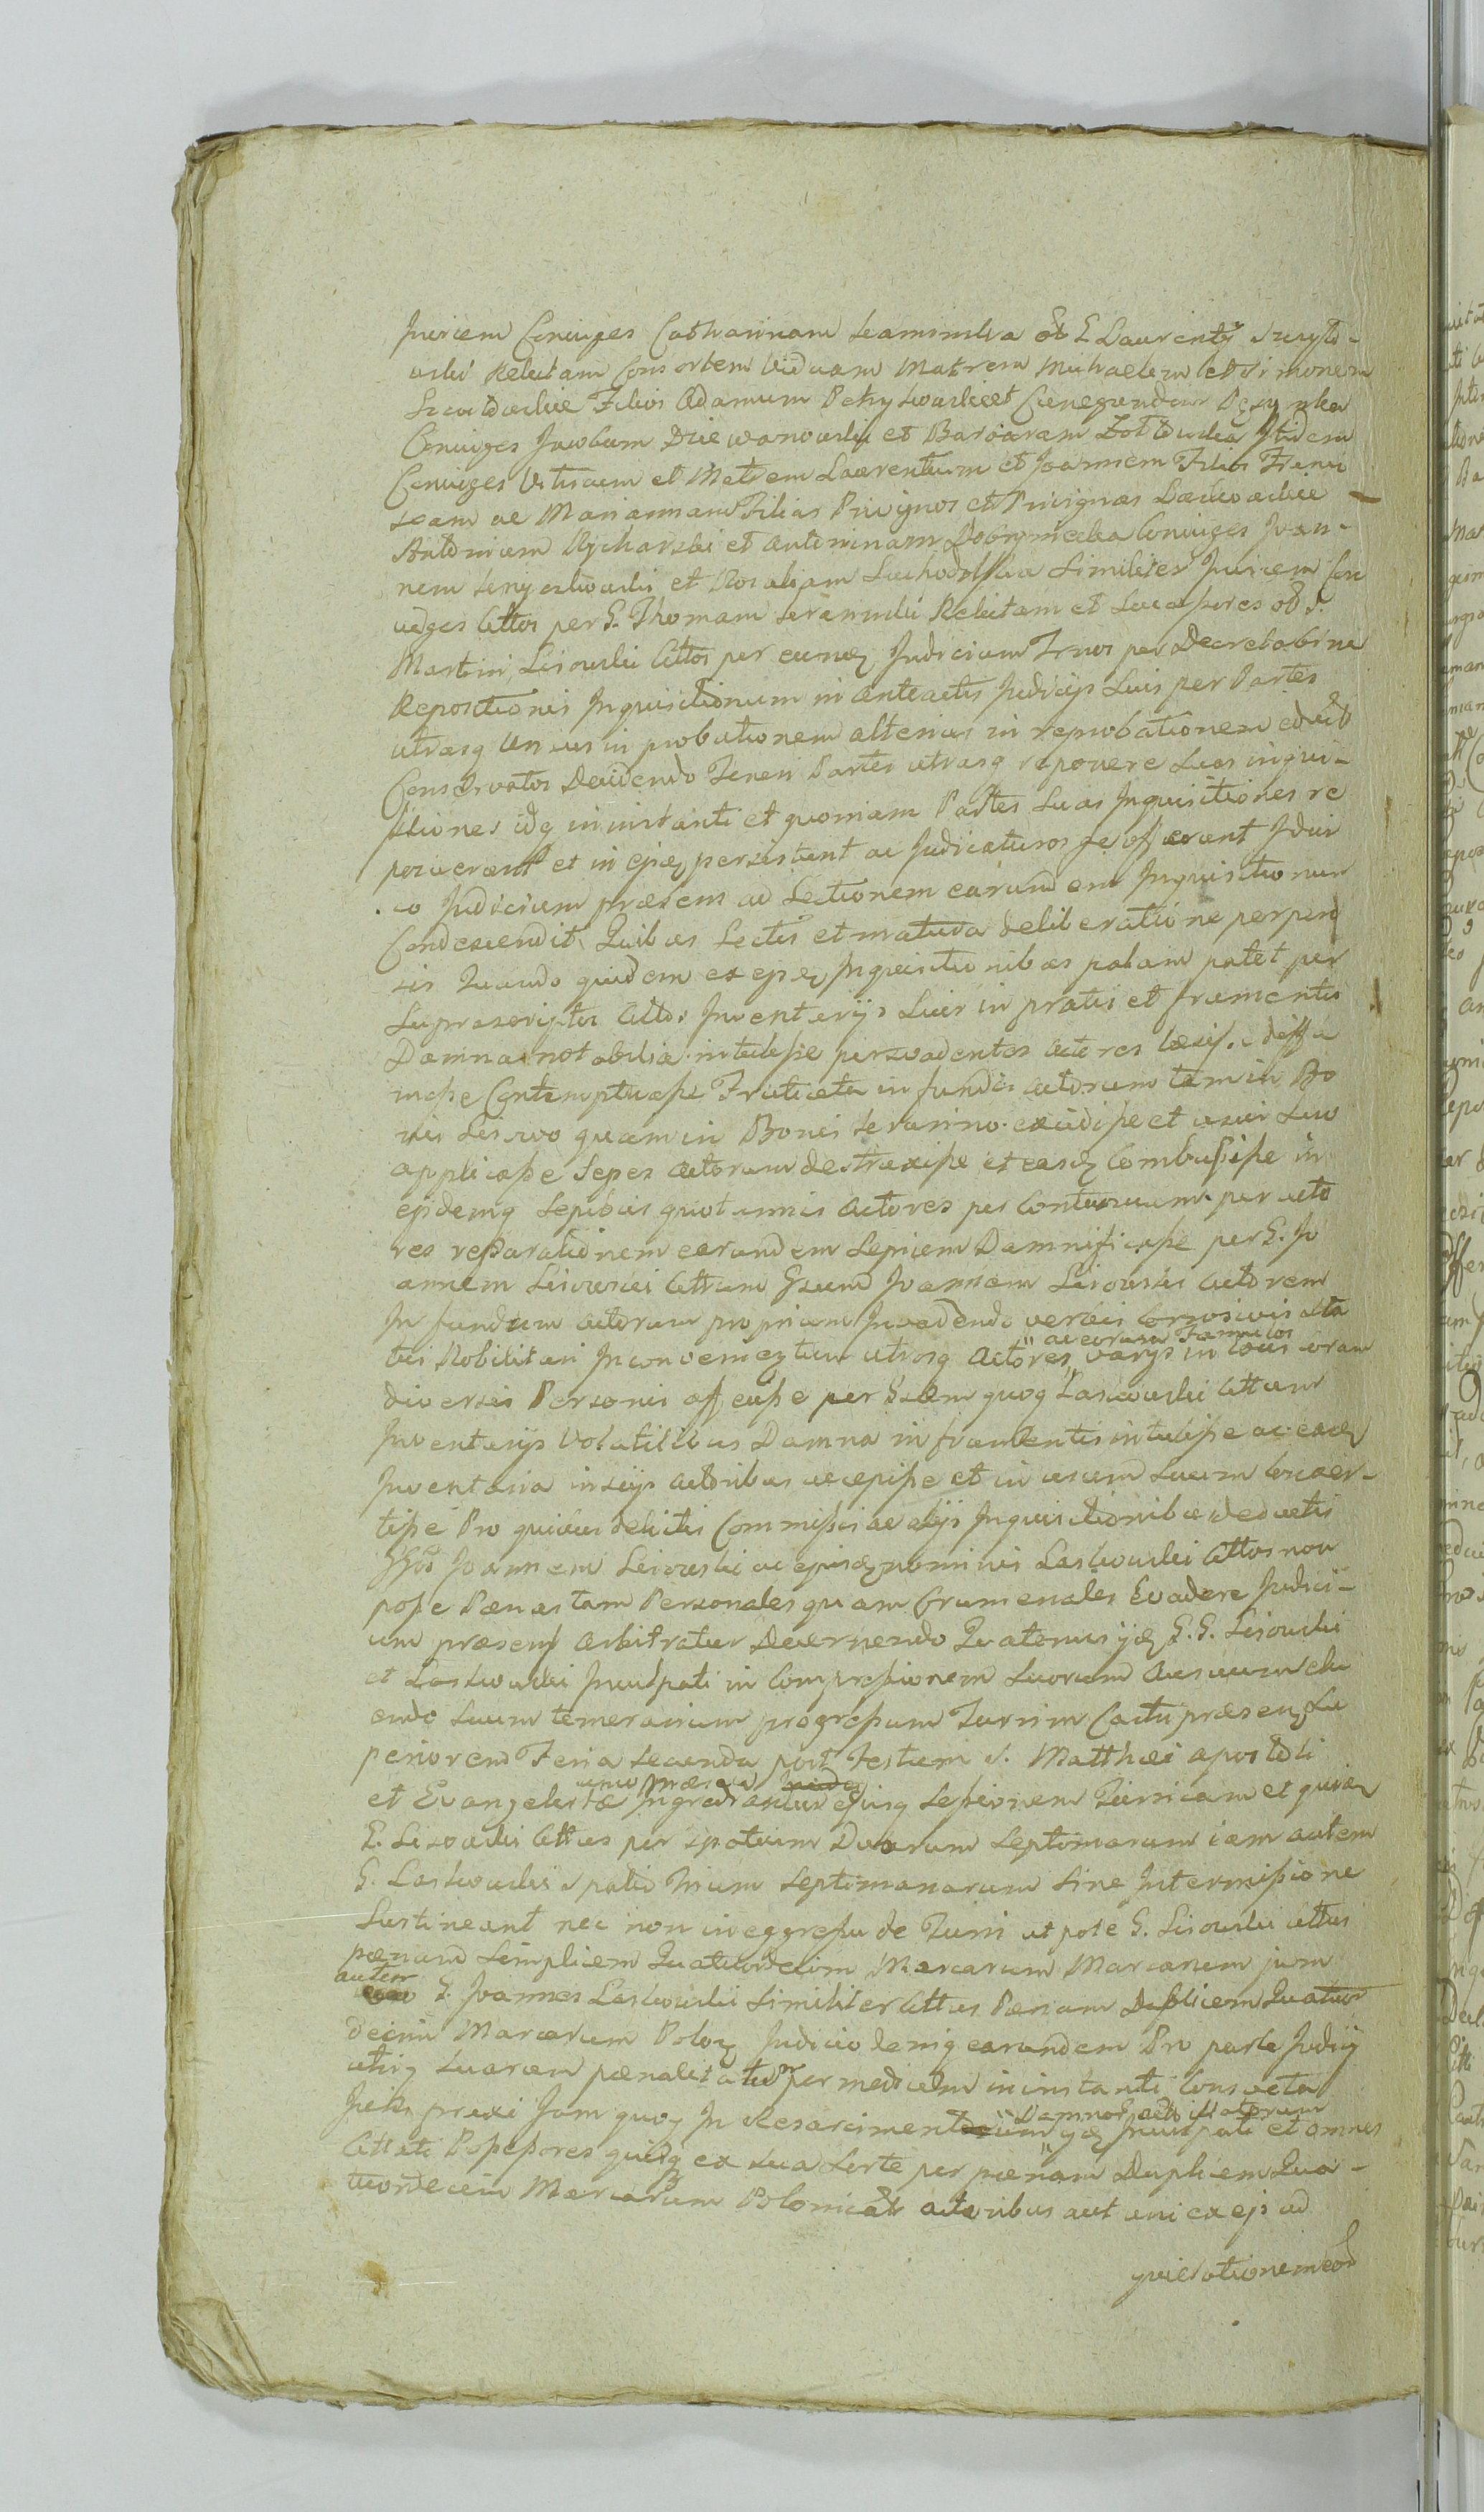 Invicem Coniuges Catharinam Kaminska olim G. Laurentij Szcyto-
wski Relictam Consortem Viduam Matrem Michaelem et Simonem
Filios Adamum et Cunegundem
Coniuges Jacobum Dziewanowski et Barbaram Zottowska Itidem
Coniuges Vitricum et Matrem Laurentium et Joannem Filios Franci
scam ac Mariannam Filias Privignos et Privignas
Antonium Rycharski et Antoninam Dobrzniecka Coniuges Joan-
nem et Rosaliam Suchodolska Similiter Invicem Con
iuges Cittos per G. Thomam Relictam et Successores olim G.
Martini Lisowski Cittos per eumq Judicium Irnos per Decreto bine
Repositionis Inquisitionum in anteactis Judicijs Suis per Partes
utrasq Unius in probationem alterius in reprobationem educt
Conservatos Decidendo Teneri Partes utrasq reponere Suas inqui-
sitiones idq in instanti et quoniam Partes Suas Inquisitiones re
posuerant et in ejsq persistent ac Judicaturos se offerant Ideir
co Judicium præsens ad Lectionem earundem Inquisitionum
Condescendit Quibus Lectis et matura deliberatione perpen
sis Quando quidem ex ejsq Inquisitionibus palam patet per
Suprascriptos Cittos Inventarijs Suis in pratis et frumentis
Damna notabilia intulisse persvadentes actores
Contempturasse Fruticeta in fundis actorum tam in Bo
nis quam in Bonis excidisse et usui suo
applicasse Sepes actorum destruxisse et easq Combussisse in
ejsdemq Sepibus quotannis actores per Continuam per acto
res reparationem earundem Sepium Damnificasse per G. Jo
annem Lisowski Cittum Gsum Joannem Lisowski actorem
In fundum actorum proprium Invadendo verbis Corrosivis Sta
tui Nobilitari Inconvenientium utrosq Actores ac eorum Famulos varijs in locis coram
diversis Personis affecisse per Gsum quoq Laskowski Cittum
Inventarijs Volatilibus Damna in frumentis intulisse ac eadq
Inventaria inscijs actoribus accepisse et in usum Suum Conver-
tisse Pro quibus delictis Commissis ac alijs Inquisitionibus deductis
Gsos Joannem Lisowski ac ejusq nominis Laskowski Cittos non
posse Pænas tam Personales quam Crumenales Evadere Judici-
um præsens arbitratur Decernendo Quatenus ijq G.G. Lisowski
et Laskowski Inculpati in Compressionem Suorum Ausuum
endo Suum temerarium progressum Turrim Castri præsen Su
periorem Feria Secunda post Festum S. Matthæi apostoli
et Evangelistæ Ingrediantur ejusq Sessionem Turricam et quidq
G. Lisowski Cittus per spatium Duarum Septimarum iam autem
G. Laskowski spatio Trium Septimanarum Sine Intermissione
Sustineant nec non in eggressu de Turri ut pote G. Lisowski Cittus
pænam Simplicem Quatuordecim Marcarum Marcarum jum
autem G. Joannes Laskowski Similiter Cittus Pænam Duplicem Quatuor
decim Marcarum Polon Judicio deniq earundem Pro parte Judicij
utriq Suarum pænalitatum per medium in instanti Consueta
praxi Jam quoq In Resarcimentum Damnorum ijq Inculpati et omnes
Cittati Possessores quisq ex Sua Sorte per pænam Duplicem Qua-
tuordecim Marcarum Polonical actoribus aut uni ex ejs ad
quietationem eod